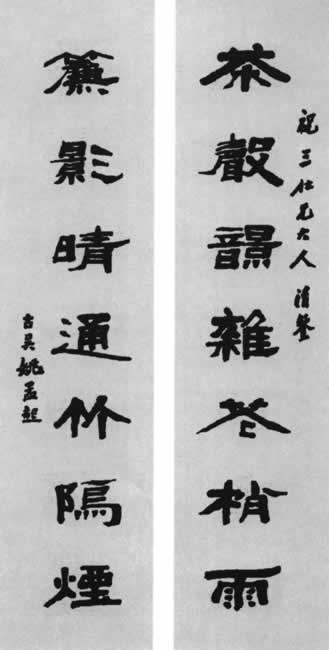 祝三仁兄大人清鑒
茶聲韻雜花梢雨
簾影晴通竹隔煙
古吳姚孟起